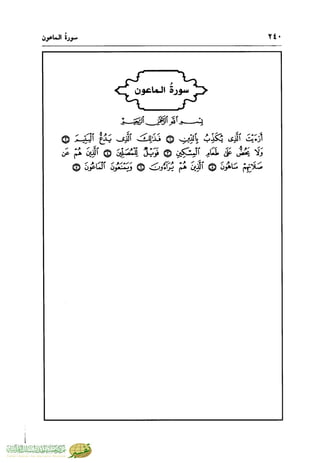 ٢٤٠ سورة الماعون
سورة الماعون
بِسْمِ اللَّهِ الرَّحْمَٰنِ الرَّحِيمِ
أَرَءَيْتَ الَّذِي يُكَذِّبُ بِالدِّينِ ① فَذَٰلِكَ الَّذِي يَدُعُّ الْيَتِيمَ ②
وَلَا يَحُضُّ عَلَىٰ طَعَامِ الْمِسْكِينِ ③ فَوَيْلٌ لِّلْمُصَلِّينَ ④ الَّذِينَ هُمْ عَن
صَلَاتِهِمْ سَاهُونَ ⑤ الَّذِينَ هُمْ يُرَاءُونَ ⑥ وَيَمْنَعُونَ الْمَاعُونَ ⑦